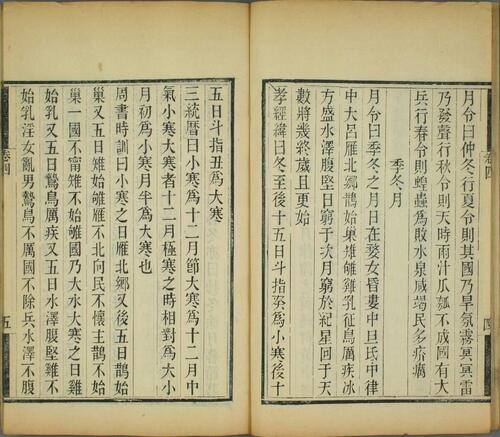 月令曰仲冬行夏令則其國乃旱氛霧冥冥雷
乃發聲行秋令則天時雨汁瓜瓠不成國有大
兵行春令則蝗蟲為敗水泉咸竭民多疥癘
季冬月
月令曰季冬之月日在婺女昏婁中旦氐中律
中大呂雁北鄉鵲始巢雉雊雞乳征鳥厲疾冰
方盛水澤腹堅日窮于次月窮於紀星回于天
數將幾終歲且更始
孝經緯曰冬至後十五日斗指癸為小寒後十
五日斗指丑為大寒
三統曆曰小寒為十二月節大寒為十二月中
氣小寒大寒者十二月極寒之時相對為大小
月初為小寒月半為大寒也
周書時訓曰小寒之日雁北鄉又後五日鵲始
巢又五日雉始雊雁不北向民不懷主鵲不始
巢一國不甯雉不始雊國乃大水大寒之日雞
始乳又五日鷙鳥厲疾又五日水澤腹堅雞不
始乳淫女亂男鷙鳥不厲國不除兵水澤不腹
卷四
五